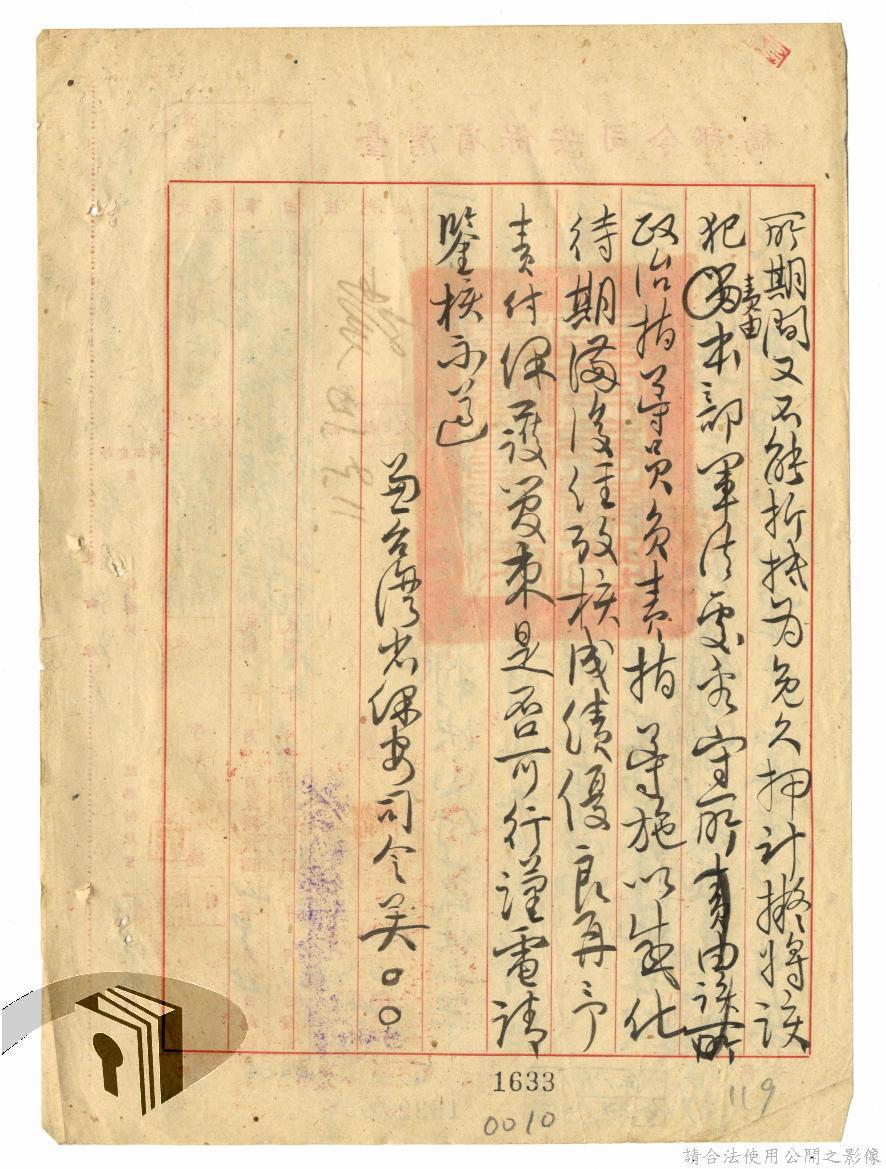 所期間又不能折抵为免久押計擬將該
犯留責由本部軍法處看守所責由該所
政治指導員負責指導施以感化
待期滿後經考核成績優良再予
責付保護管束是否可行謹電請
鑒核示遵
兼台灣省保安司令吳○○
1633
0010
119
請合法使用公開之影像